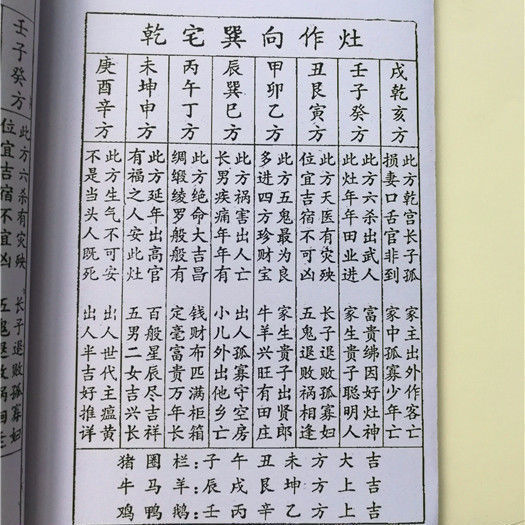 乾宅巽向作灶
戌乾亥方
此方乾宫长子孤 家主出外作客亡
损妻口舌官非到 家中孤寡少年亡
壬子癸方
此方六杀出武人 富贵绋因好灶神
此灶年年田业进 家生贵子聪明人
丑艮寅方
此方天医有灾殃 长子退败孤寡妇
位宜吉宿不可凶 五鬼退败祸相逢
甲卯乙方
此方五鬼最为良 家生贵子出贤郎
多进四方珍财宝 牛羊兴旺有田庄
辰巽巳方
此方祸害出人亡 出人孤寡守空房
长男疾痛年年有 小儿外出他乡亡
丙午丁方
此方绝命大吉昌 钱财布匹满柜箱
绸缎绫罗般般有 定毫富贵万年长
未坤申方
此方延年出高官 百般星辰尽吉祥
有福之人安此灶 五男二女吉兴长
庚酉辛方
此方生气不可安 出人世代主瘟黄
不是当头人既死 出人半吉好推详
猪圈栏:子午丑未方大吉
牛马羊:辰戌艮坤方上吉
鸡鸭鹅:壬丙辛乙方上吉
壬子癸方
此方六杀有灾殃 长子退败孤寡妇
位宜吉宿不宜凶 五鬼退败祸相